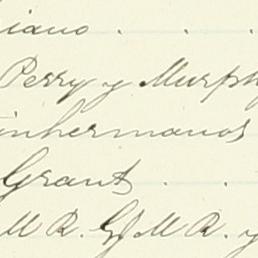 iano . . .
Perry y Murphy
inhermanos
Grant . .
M R. G M R. y